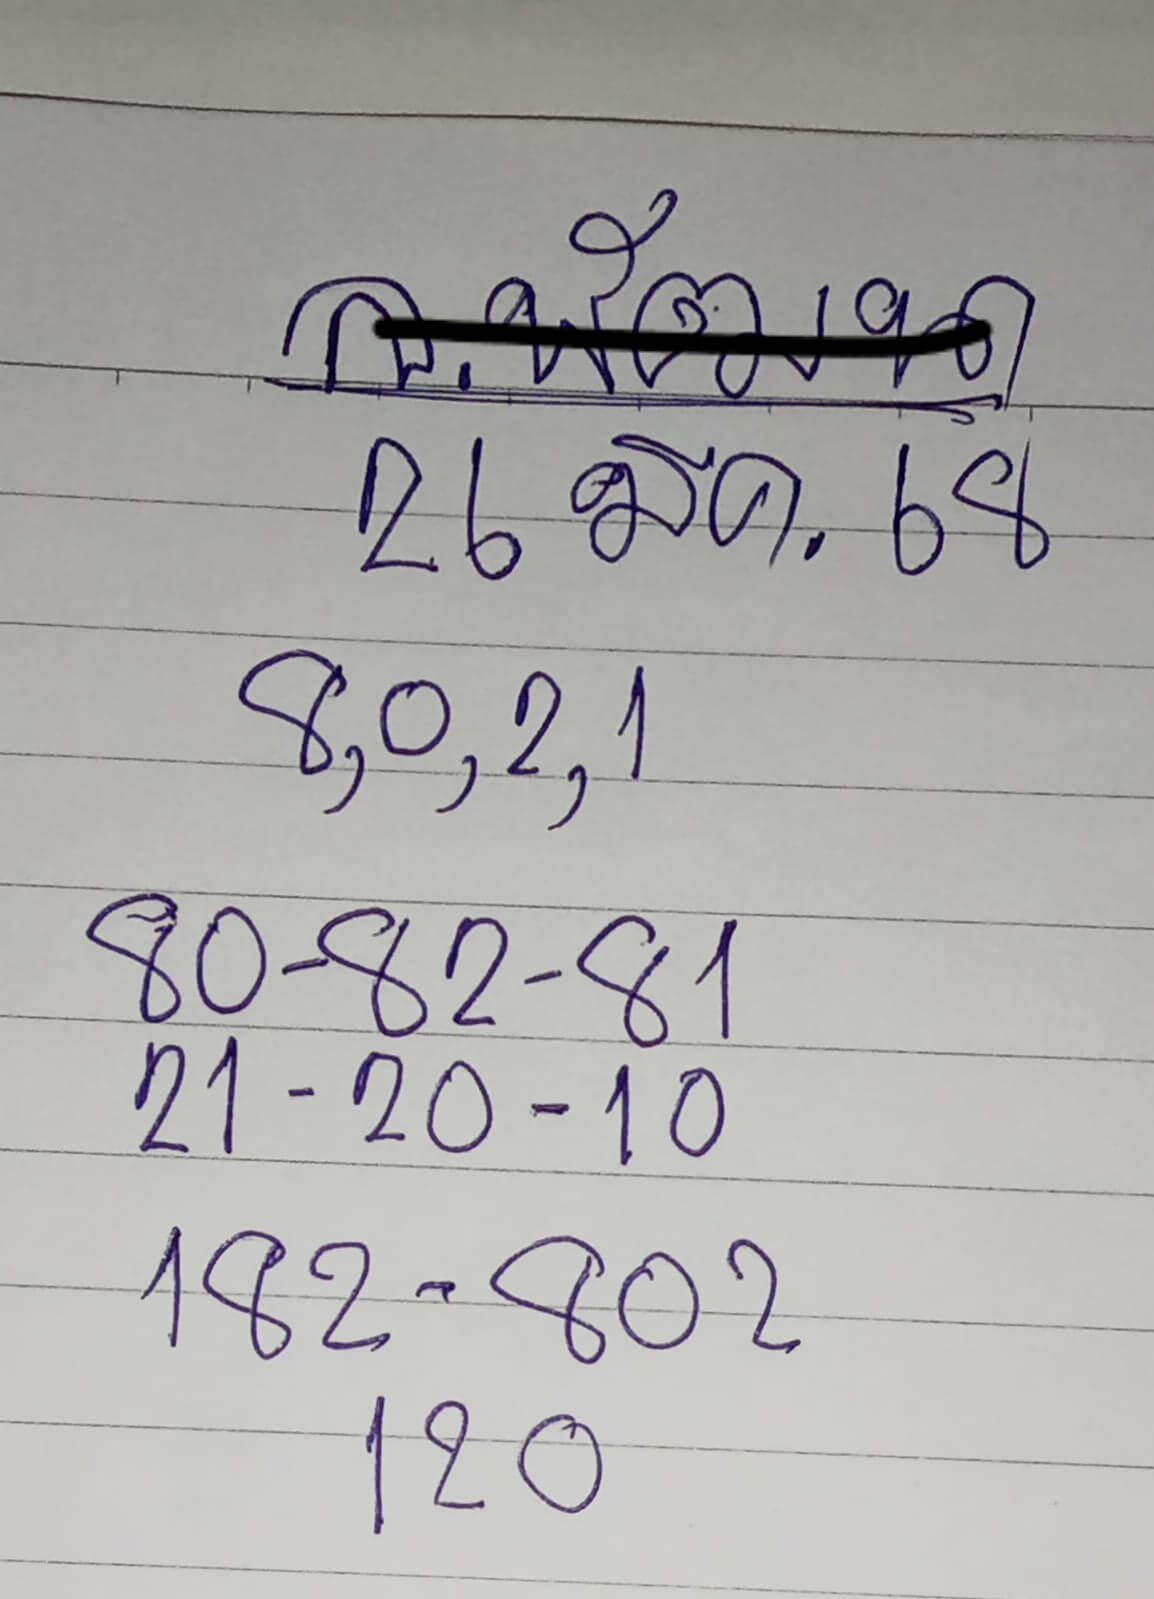 26 มีค. 68
8,0,2,1
80-82-81
21-20-10
182-802
120